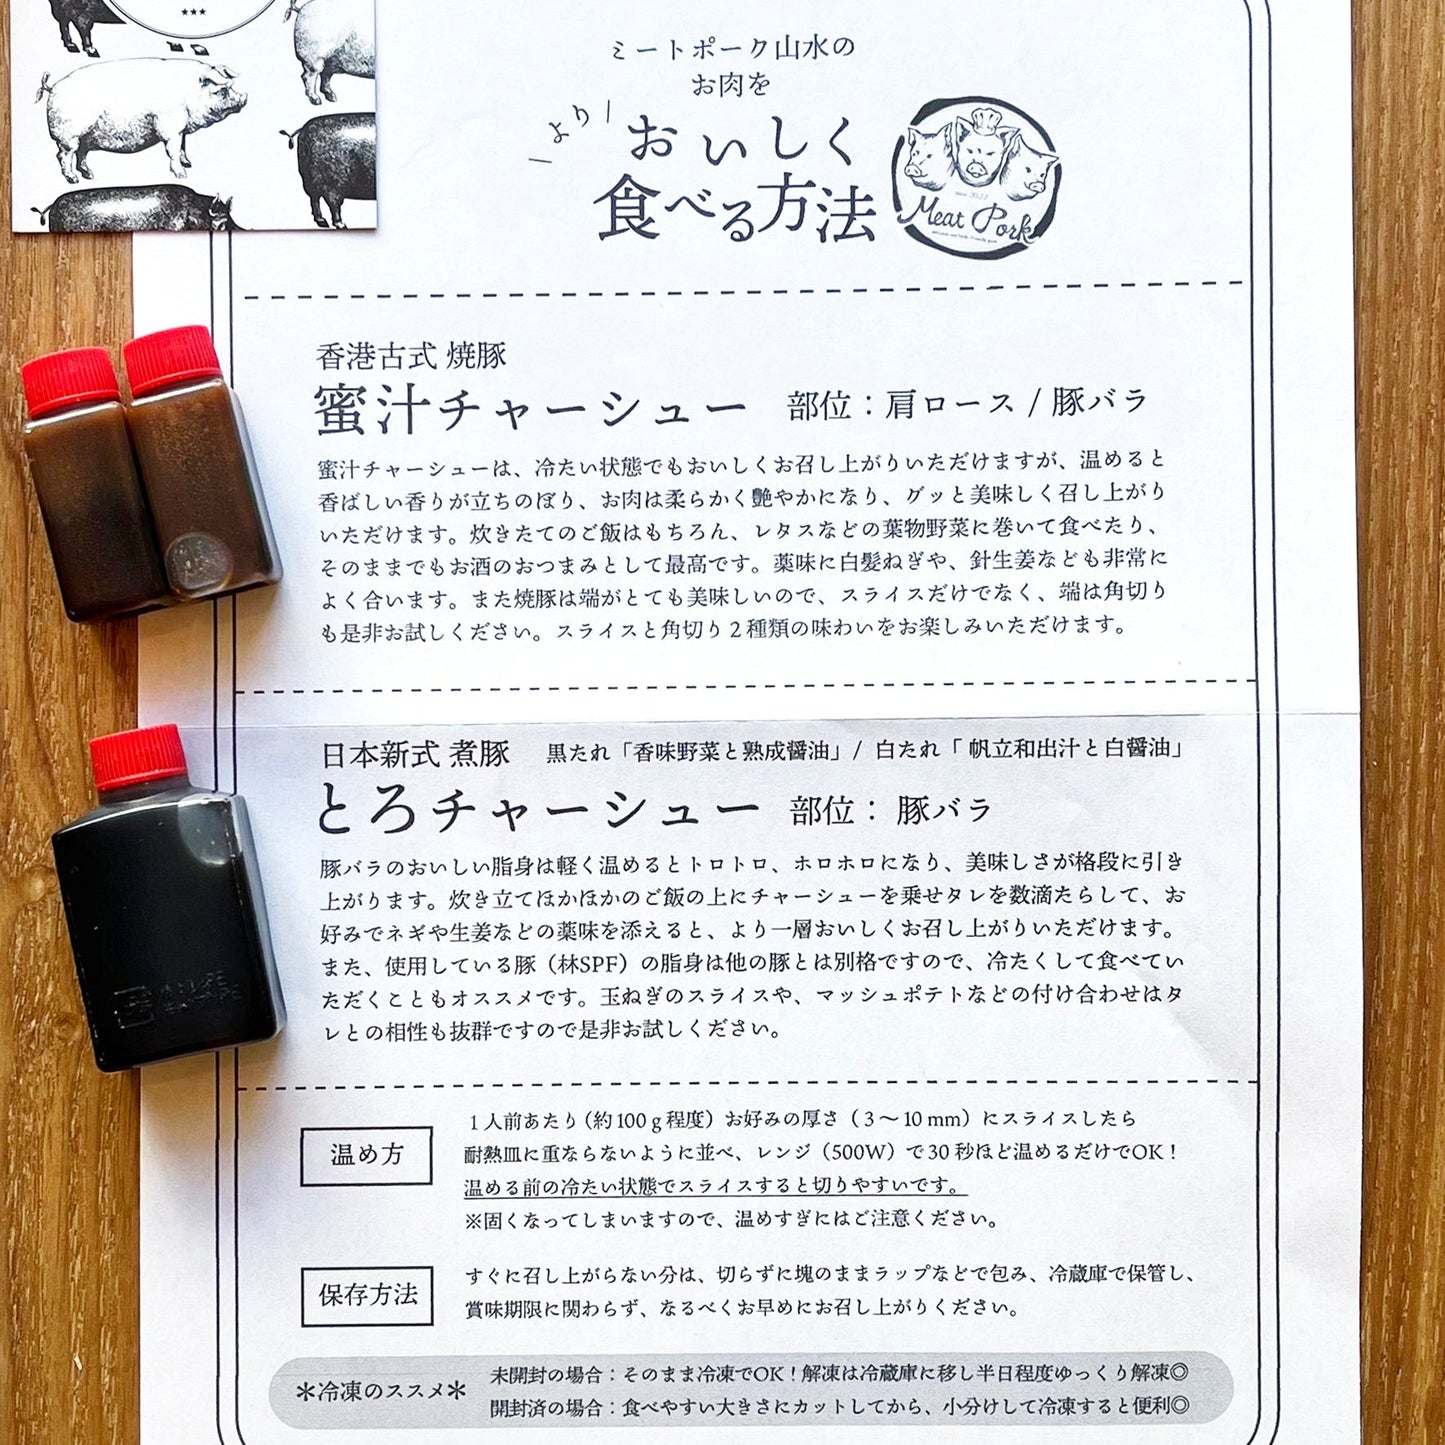 ミートポーク山水の
お肉を
より
おいしく
食べる方法
Meat Pork
香港古式 焼豚
蜜汁チャーシュー 部位：肩ロース / 豚バラ
蜜汁チャーシューは、冷たい状態でもおいしくお召し上がりいただけますが、温めると
香ばしい香りが立ちのぼり、お肉は柔らかく艶やかになり、グッと美味しく召し上がり
いただけます。炊きたてのご飯はもちろん、レタスなどの葉物野菜に巻いて食べたり、
そのままでもお酒のおつまみとして最高です。薬味に白髪ねぎや、針生姜なども非常に
よく合います。また焼豚は端がとても美味しいので、スライスだけでなく、端は角切り
も是非お試しください。スライスと角切り２種類の味わいをお楽しみいただけます。
日本新式 煮豚 黒たれ「香味野菜と熟成醤油」/ 白たれ「帆立和出汁と白醤油」
とろチャーシュー 部位： 豚バラ
豚バラのおいしい脂身は軽く温めるとトロトロ、ホロホロになり、美味しさが格段に引き
上がります。炊き立てほかほかのご飯の上にチャーシューを乗せタレを数滴たらして、お
好みでネギや生姜などの薬味を添えると、より一層おいしくお召し上がりいただけます。
また、使用している豚（林SPF）の脂身は他の豚とは別格ですので、冷たくして食べてい
ただくこともオススメです。玉ねぎのスライスや、マッシュポテトなどの付け合わせはタ
レとの相性も抜群ですので是非お試しください。
温め方
１人前あたり（約100ｇ程度）お好みの厚さ（３〜10 mm）にスライスしたら
耐熱皿に重ならないように並べ、レンジ（500W）で30 秒ほど温めるだけでOK！
温める前の冷たい状態でスライスすると切りやすいです。
※固くなってしまいますので、温めすぎにはご注意ください。
保存方法
すぐに召し上がらない分は、切らずに塊のままラップなどで包み、冷蔵庫で保管し、
賞味期限に関わらず、なるべくお早めにお召し上がりください。
＊冷凍のススメ＊
未開封の場合：そのまま冷凍でOK！解凍は冷蔵庫に移し半日程度ゆっくり解凍◎
開封済の場合：食べやすい大きさにカットしてから、小分けして冷凍すると便利◎